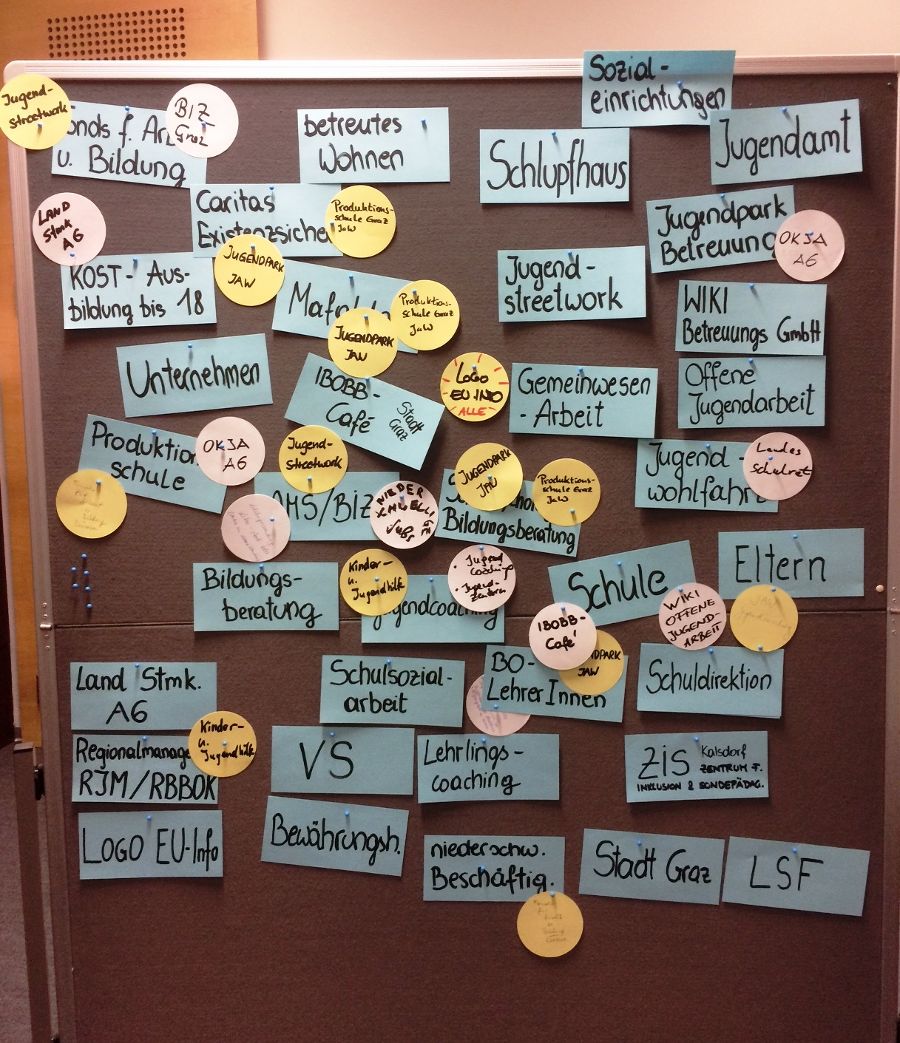 Sozial-
einrichtungen
Jugend-
streetwork
onds f. Ar
u. Bildung
BIZ
Graz
betreutes
Wohnen
Schlupfhaus
Jugendamt
LAND
Stmk
A6
Caritas
Existenzsiche
Produktions-
schule Graz
JAW
Jugendpark
Betreuung
OKJA
A6
KOST- Aus-
bildung bis 18
JUGENDPARK
JAW
Produktions-
schule Graz
JAW
JUGENDPARK
JAW
Jugend-
streetwork
WIKI
Betreuungs GmbH
Unternehmen
IBOBB-
Café
Stadt
Graz
LOGO
EU INFO
ALLE
Gemeinwesen
- Arbeit
Offene
Jugendarbeit
Produktion
schule
OKJA
A6
Jugend-
streetwork
AMS/BIZ
JUGENDPARK
JAW
Produktions-
schule Graz
JAW
Bildungsberatung
Jugend-
wohlfahrt
Landes
Schulrat
Bildungs-
beratung
Kinder-
u.
Jugendhilfe
• Jugend
coaching
• Jugend-
zentren
Jugendcoaching
Schule
Eltern
IBOBB-
Café
WIKI
OFFENE
JUGEND-
ARBEIT
Land Stmk.
A6
Schulsozial-
arbeit
BO-
LehrerInnen
NDPARK
JAW
Schuldirektion
Regionalmanage
RJM/RBBOK
Kinder-
u.
Jugendhilfe
VS
Lehrlings-
coaching
ZIS Kalsdorf
ZENTRUM F.
INKLUSION & SONDERPÄDAG.
LOGO EU-Info
Bewährungsh.
niederschw.
Beschäftig.
Stadt Graz
LSF